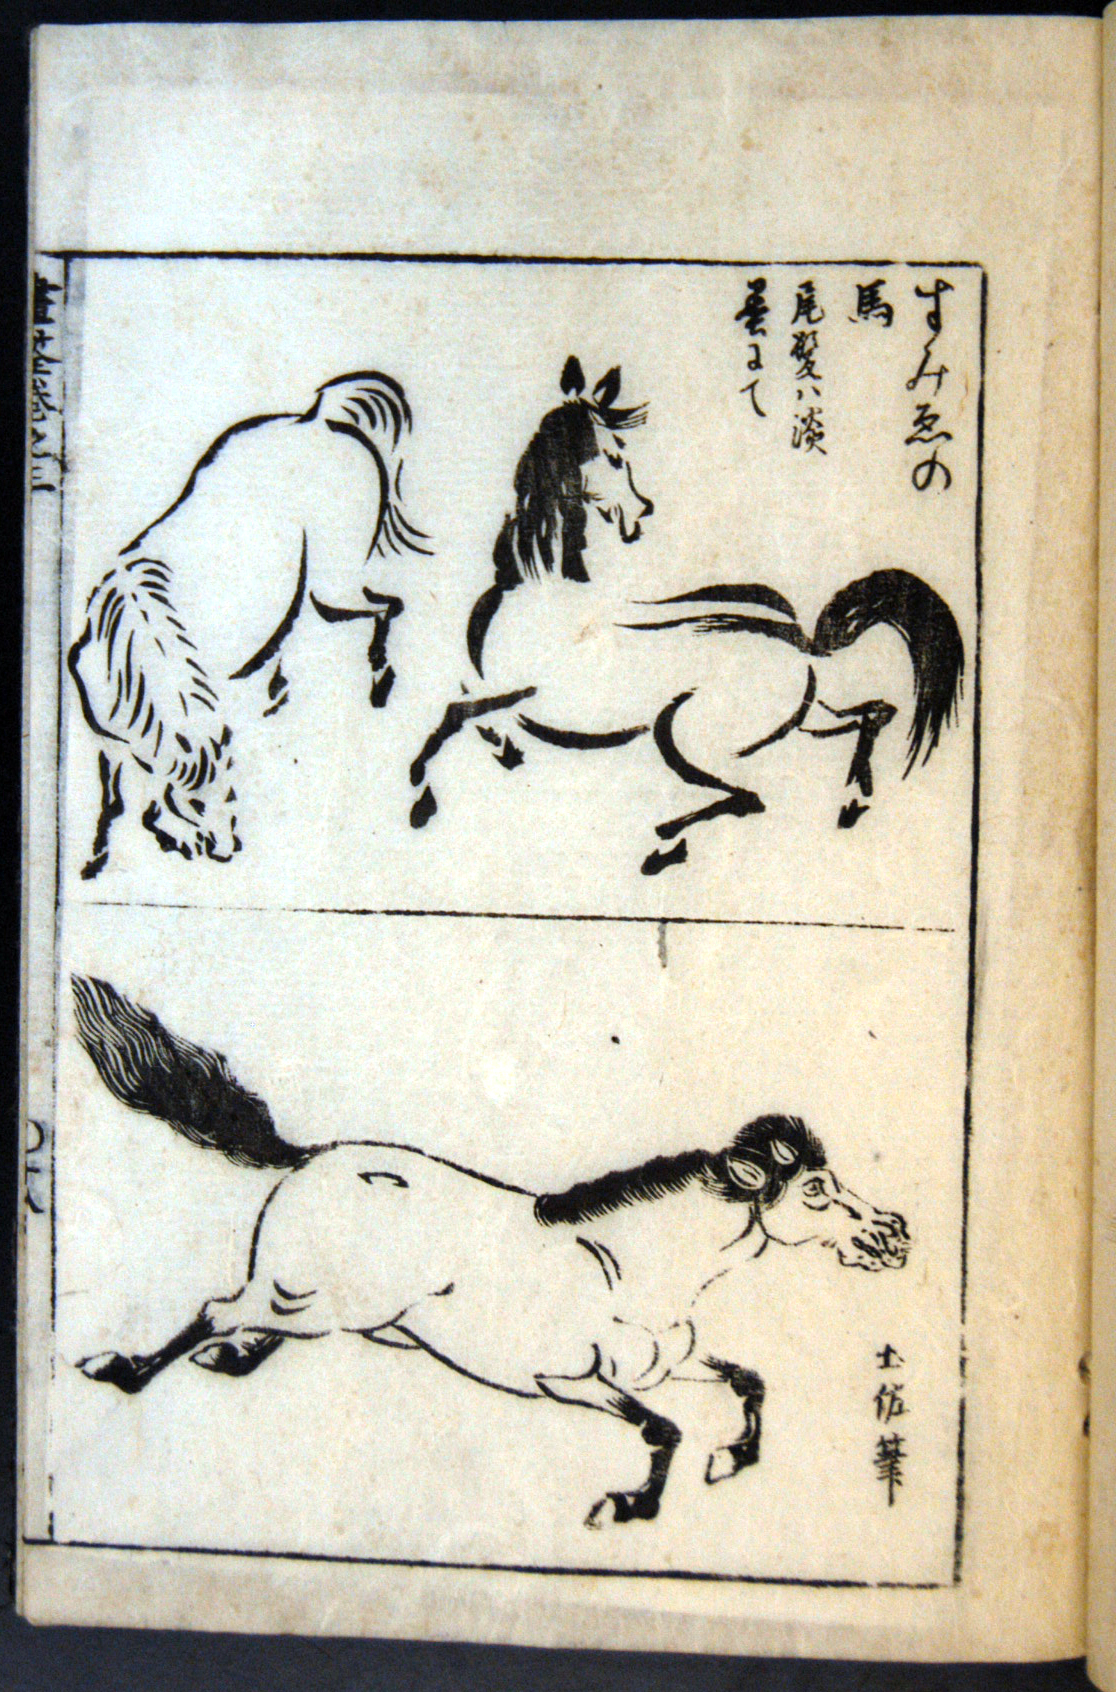 すみゑの
馬
尾髪ハ淡
墨にて
土佐筆